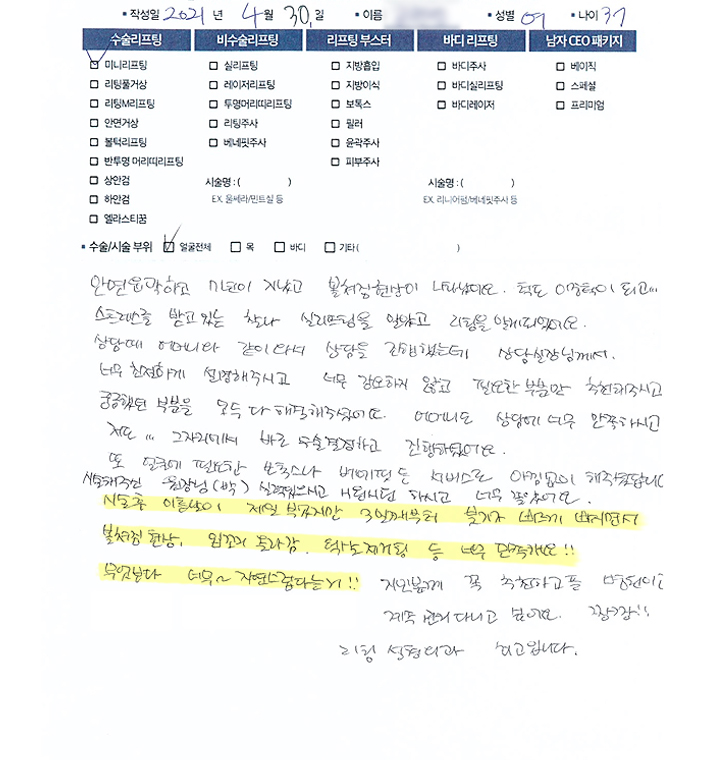 • 작성일 2021 년 4 월 30 일 • 이름 • 성별 여 • 나이 37
수술리프팅 비수술리프팅 리프팅 부스터 바디 리프팅 남자 CEO 패키지
미니리프팅 실리프팅 지방흡입 바디주사 베이직
리팅풀거상 레이저리프팅 지방이식 바디실리프팅 스페셜
리팅M리프팅 투명머리띠리프팅 보톡스 바디레이저 프리미엄
안면거상 리팅주사 필러
볼턱리프팅 베네핏주사 윤곽주사
반투명 머리띠리프팅 피부주사
상안검 시술명 : ( ) 시술명 : ( )
하안검 EX. 울쎄라/민트실 등 EX. 리니어펌/베네핏주사 등
엘라스티꿈
• 수술/시술 부위 얼굴전체 목 바디 기타 ( )
안면윤곽하고 지났고 볼처짐현상이 나타났어요. 턱도 이중턱이 되고"
스트레스를 받고 있는 찰나 실리프팅을 알았고 리팅을 알게되었어요.
상담때 어머니와 같이 와서 상담을 진행했는데 상담실장님께서.
너무 친절하게 설명해주시고 너무 강요하지 않고 필요한 부분만 추천해주시고
궁금했던 부분을 모두 다 해결해주셨어요. 어머니도 상담에 너무 만족하시고
저도 ,,, 그자리에서 바로 수술결정하고 진행하였어요.
또 얼굴에 필요한 보톡스나 베네핏 등 서비스로 아낌없이 해주셨답니다
시술해주신 원장님 (박) 실력있으시고 너무 좋았어요.
시술후 이틀날이 제일 부었지만 3일째부터 붓기가 빠르게 빠지면서
볼처짐 현상, 입꼬리 올라감, 등 너무 만족해요!!
무엇보다 너무~ 자연스럽다는거!! 지인분께 꼭 추천하고픈 병원이고
계속 다니고 싶어요. 짱짱!!
리팅 성형외과 최고입니다.